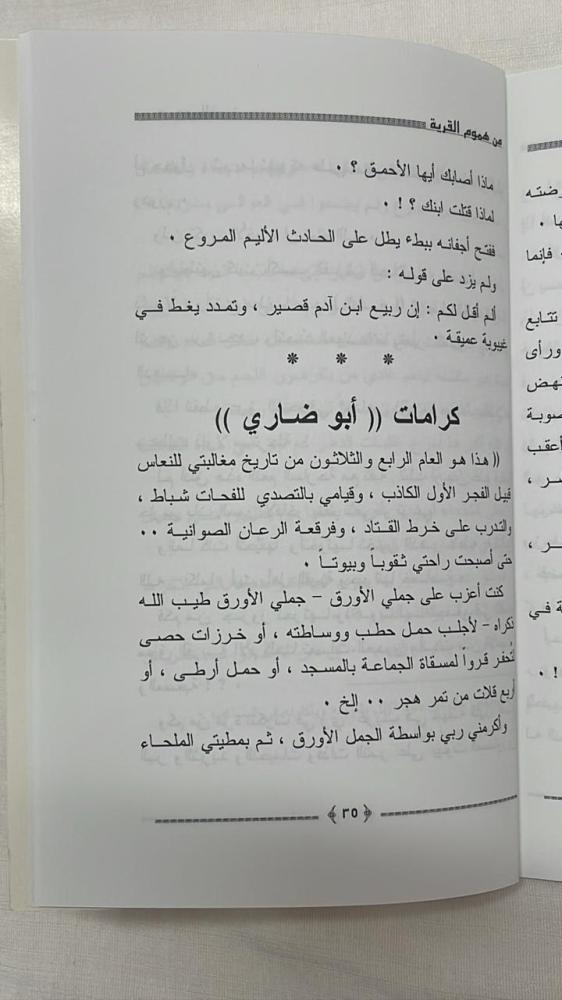 من هموم القرية
ماذا أصابك أيها الأحمق ؟ ٠
لماذا قتلت ابنك ؟ ! ٠
ففتح أجفانه ببطء يطل على الحادث الأليم المروع ٠
ولم يزد على قوله :
ألم أقل لكم : إن ربيع ابن آدم قصير ، وتمدد يغط في
غيبوبة عميقة ٠
* * *
كرامات (( أبو ضاري ))
(( هذا هو العام الرابع والثلاثون من تاريخ مغالبتي للنعاس
قبل الفجر الأول الكاذب ، وقيامي بالتصدي للفحات شباط ،
والتدرب على خرط القتاد ، وفرقعة الرعان الصوانية ٠٠
حتى أصبحت راحتي ثقوباً وبيوتاً ٠
كنت أعزب على جملي الأورق – جملي الأورق طيب الله
ذكراه – لأجلب حمل حطب ووساطته ، أو خرزات حصى
تُحفر قرواً لمسقاة الجماعة بالمسجد ، أو حمل أرطى ، أو
أربع قلات من تمر هجر ٠٠ إلخ ٠
وأكرمني ربي بواسطة الجمل الأورق ، ثم بمطيتي الملحاء
٣٥
رضته
ها ٠
فإنما
تتابع
ورأى
نهض
صوبة
أعقب
سر ،
ر ،
ة في
! ٠